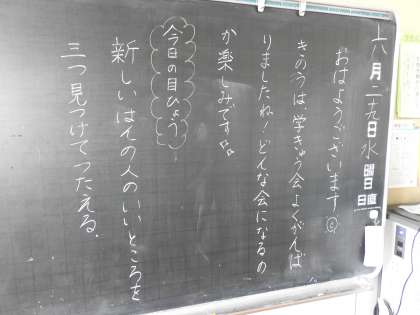 六月二十九日水曜日
日直
おはようございます。
きのうは、学きゅう会よくがんば
りましたね！どんな会になるの
か楽しみです。
今日の目ひょう
新しいはんの人のいいところを
三つ見つけてつたえる。